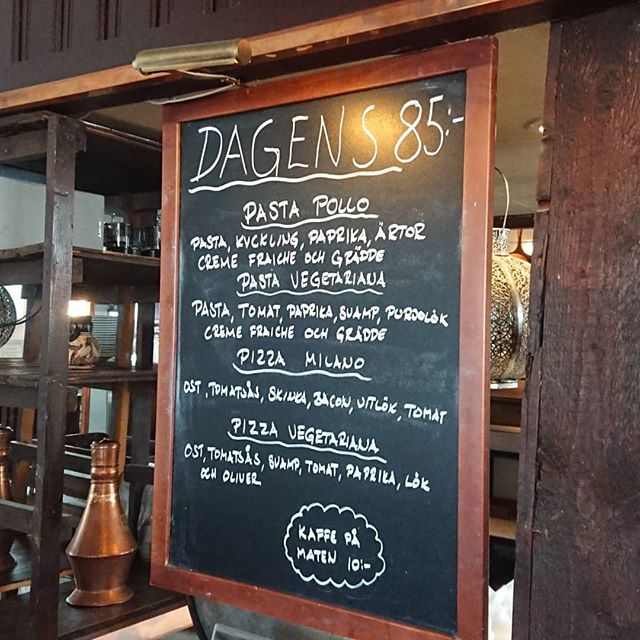 DAGENS 85:-
PASTA POLLO
PASTA, KYCKLING, PAPRIKA, ÄRTOR
CREME FRAICHE OCH GRÄDDE
PASTA VEGETARIANA
PASTA, TOMAT, PAPRIKA, SVAMP, PURJOLÖK
CREME FRAICHE OCH GRÄDDE
PIZZA MILANO
OST, TOMATSÅS, SKINKA, BACON, VITLÖK, TOMAT
PIZZA VEGETARIANA
OST, TOMATSÅS, SVAMP, TOMAT, PAPRIKA, LÖK
OCH OLIVER
KAFFE PÅ
MATEN 10:-